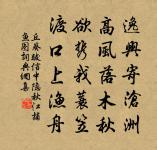 逸興寄滄洲
高風落木秋
欲携我蓑笠
渡口上漁舟
丘葵跋信中隱秋江捕
魚圖詞典網集